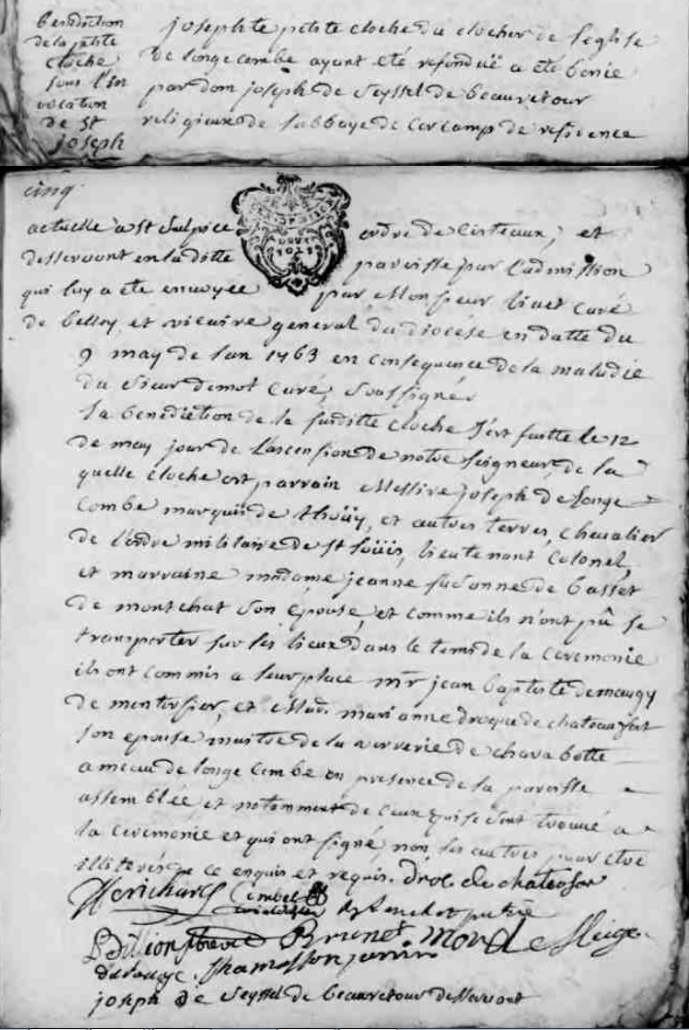 benediction
de la petite
cloche
sous l'in
vocation
de st
joseph
josephte petite cloche du clocher de l'eglise
de longecombe ayant eté refonduë a eté benie
par dom joseph de Seyssel de beauretour
religieux de l'abbaye de cercamp de residence
cinq.
actuelle a st Sulpice ordre de Cisteaux, et
desservant en la ditte paroisse par l'admission
qui luy a ete envoyée par Monsieur Curé
de belley, et vicaire general du diocèse en datte du
9 may de l'an 1763 en consequence de la maladie
du Sieur demot Curé, Soussignés
la benediction de la susditte cloche s'est faitte le 12
de may jour de l'ascension de notre seigneur, de la
quelle cloche est parrain Messire joseph de Longe
combe marquis de thoüy, et autres terres, chevalier
de l'ordre militaire de st Loüis, lieutenant Colonel,
et marraine madame jeanne de basset
de montchat son épouse, et comme ils n'ont pû se
transporter sur les lieux dans le tems de la ceremonie
ils ont commis a leur place mr jean baptiste
de et Mad. marianne droque de chateaufort
son epouse maitre de la verrerie de charabotte
ameau de longecombe en presence de la paroisse
assemblée, et notemment de ceux qui se sont trouvé a
la ceremonie et qui ont signé, non les autres pour etre
illiterés de ce enquis et requis.
Brunet
joseph de Seyssel de beauretour desservant